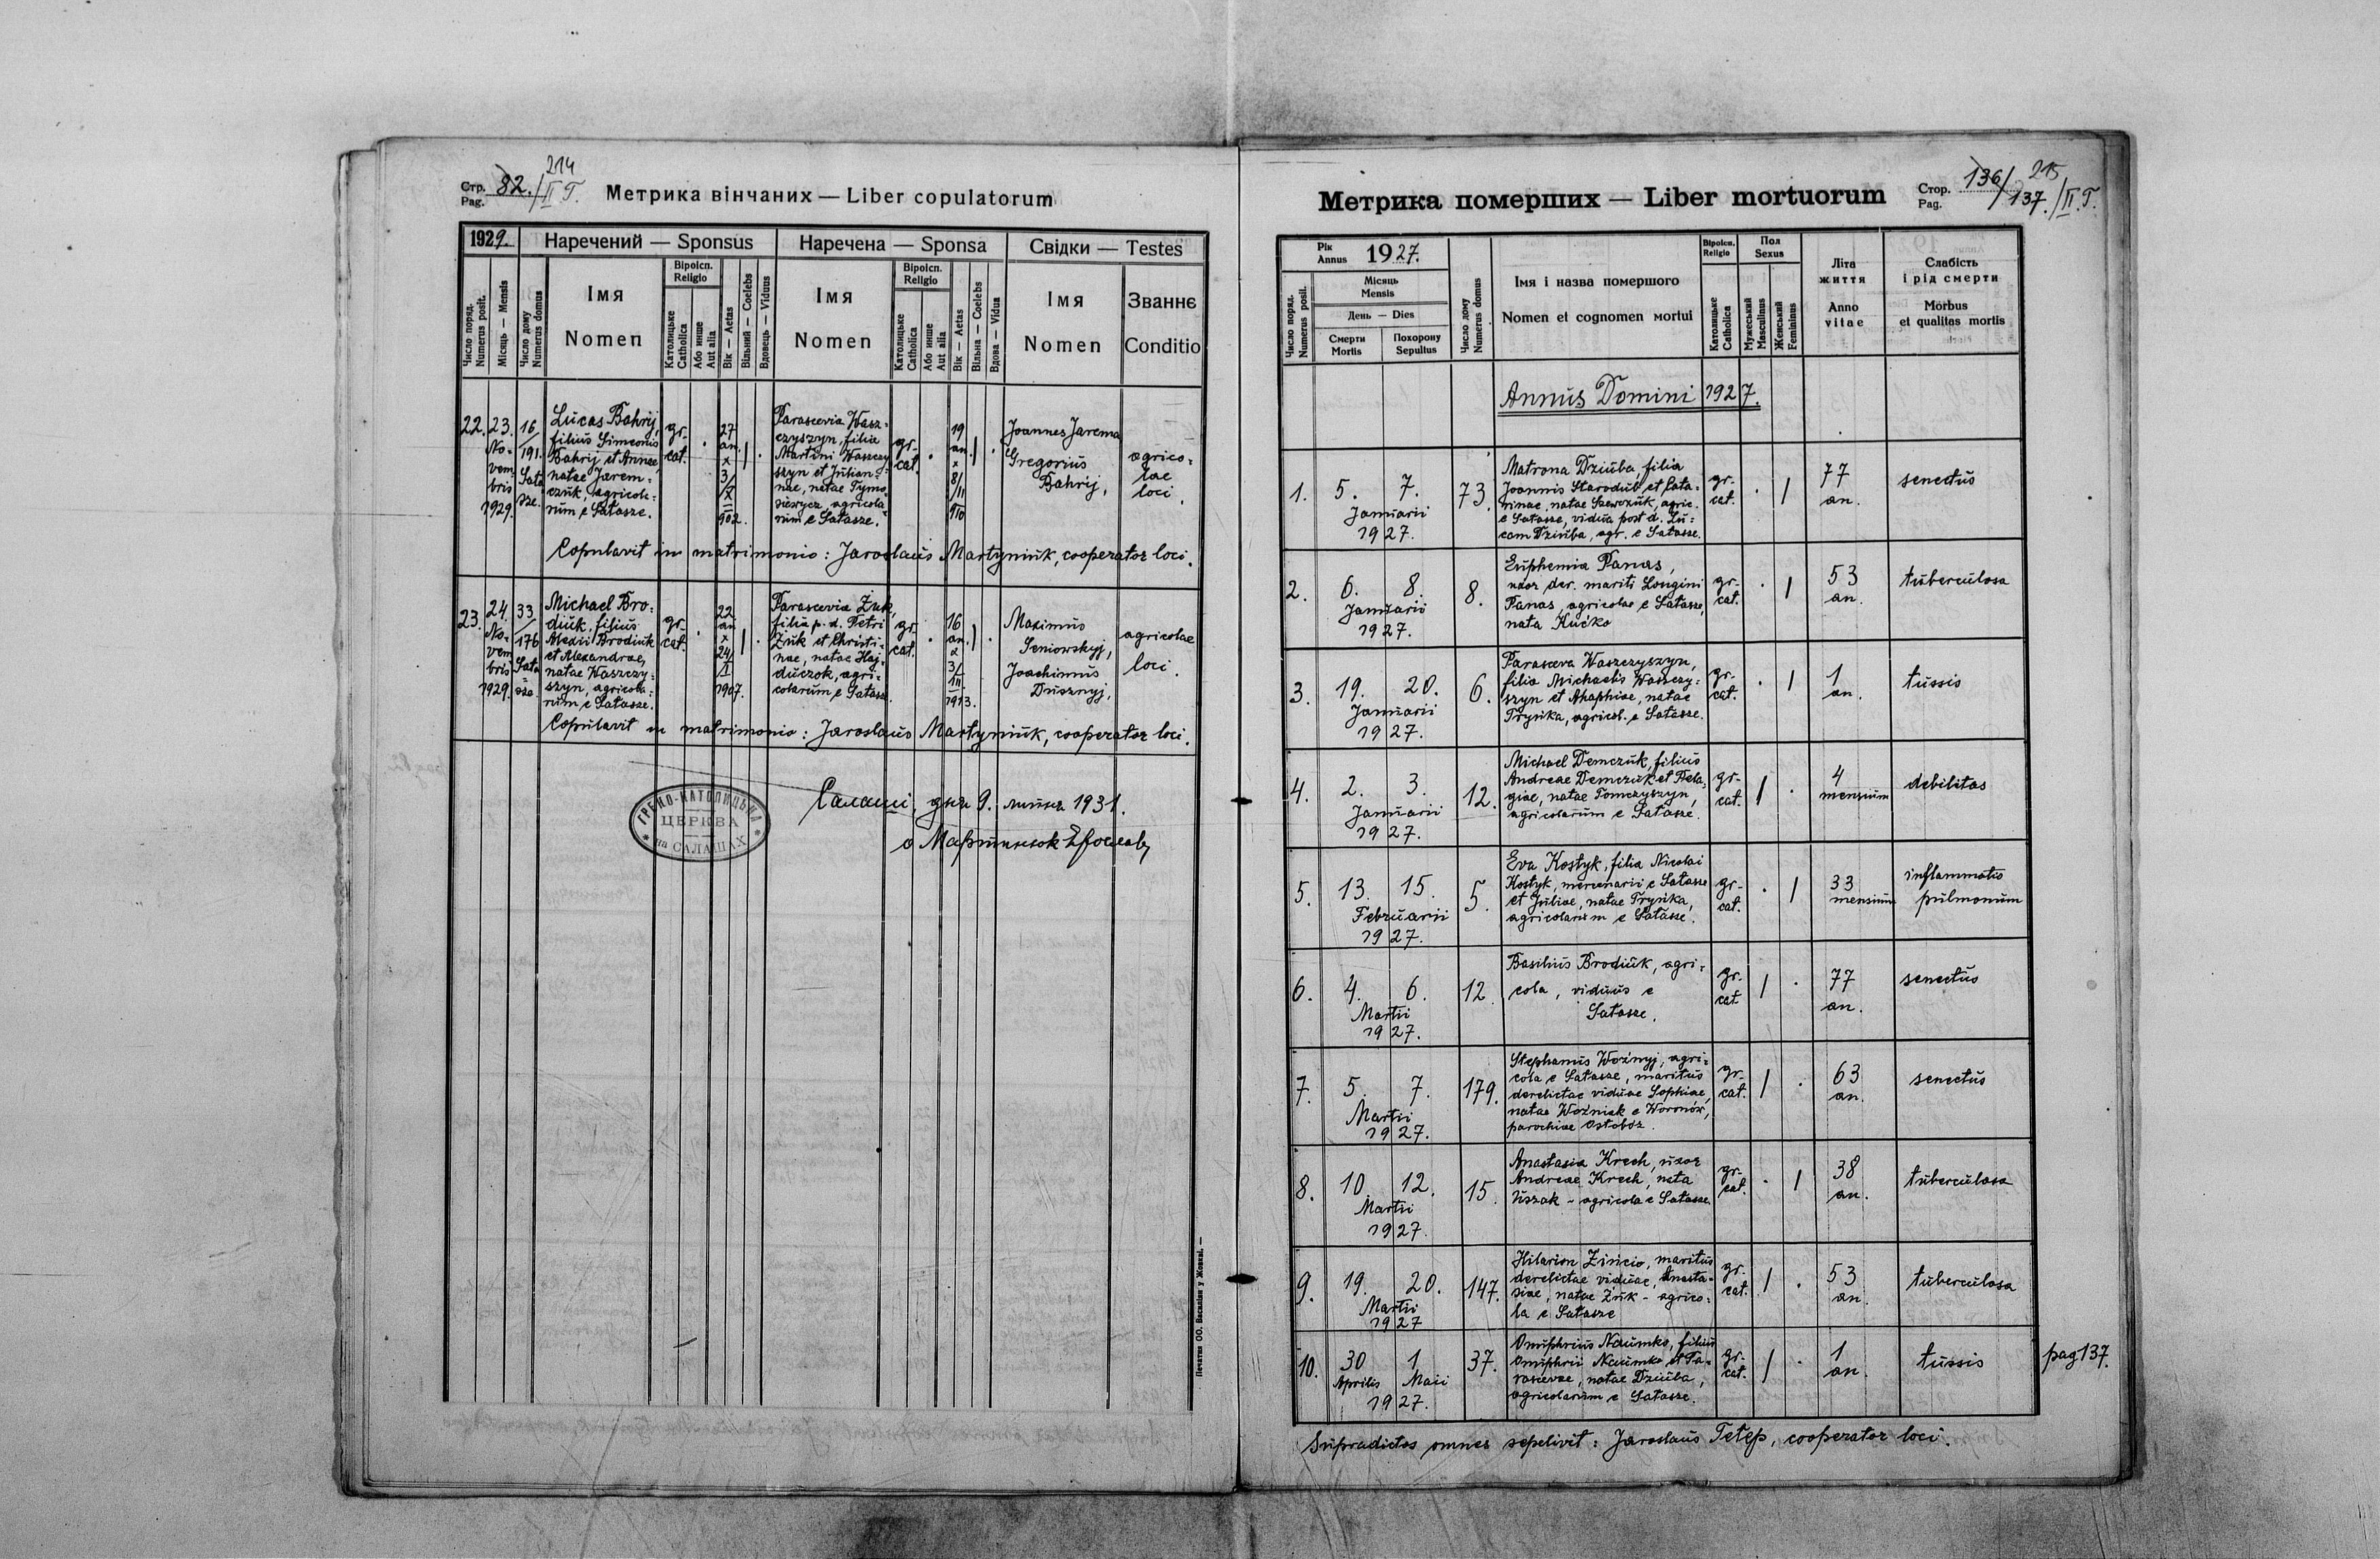 214
Стр. 82. / II T.
Pag.
Метрика вінчаних — Liber copulatorum
1929.
Наречений — Sponsus
Наречена — Sponsa
Свідки — Testes
Число поряд.
Numerus posit.
Місяць — Mensis
Число дому
Numerus domus
Імя
Nomen
Віроісп.
Religio
Католицьке
Catholica
Або инше
Aut alia
Вік — Aetas
Вільний — Coelebs
Вдовець — Viduus
Імя
Nomen
Віроісп.
Religio
Католицьке
Catholica
Або инше
Aut alia
Вік — Aetas
Вільна — Coelebs
Вдова — Vidua
Імя
Nomen
Званнє
Conditio
22.
23.
No-
vem
bris
1929.
16
191.
Sała
sze.
Lúcas Bahrij,
filiús Simeonis
Bahrij et Annae
natae Jarem-
czúk, agricola-
rúm e Sałasze.
gr.
cat.
27
an.
x
3/
X
902.
Parascevia Wasz-
czyszyn, filia
Martini Waszczy
szyn et Júlian-
nae, natae Tymo-
siewycz, agricola-
rúm e Sałasze.
gr.
cat.
19
an.
x
8/
II
910
Joannes Jarema
Gregoriús
Bahrij,
agrico-
lae
loci.
Copulavit in matrimonio: Jaroslaús Martyniúk, cooperator loci.
23.
24.
No-
vem
bris
1929.
33
176
Sała
sze.
Michael Bro-
diúk, filiús
Alexii Brodiúk
et Alexandrae,
natae Waszczy-
szyn, agricola-
rúm e Sałasze.
gr.
cat.
22
an
x
24/
I
1907.
Parascevia Żuk,
filia p. d. Petri
Żúk et Christi-
nae, natae Haj-
dúczok, agri-
colarúm e Sałasze.
gr.
cat.
16
an.
x
3/
III
1913.
Maximús
Seniowskyj,
Joachimús
Dúsznyj,
agricolae
loci.
Copúlavit in matrimonio: Jaroslaús Martyniúk, cooperator loci.
ГРЕКО-КАТОЛИЦЬКА
ЦЕРКВА
на САЛАШАХ
Салаші, дня 9. липня 1931.
о Мартинюк Ярослав
Печатня ОО. Василіян у Жовкві. —
Метрика померших — Liber mortuorum
Стор. 136/137. / II. T.
Pag.
215
Рік
Annus
1927.
Число поряд.
Numerus posit.
Місяць
Mensis
День — Dies
Смерти
Mortis
Похорону
Sepultus
Число дому
Numerus domus
Імя і назва помершого
Nomen et cognomen мortui
Віроісп.
Religio
Католицьке
Catholica
Пол
Sexus
Мужеський
Masculinus
Женський
Femininus
Літа
життя
Anno
vitae
Слабість
і рід смерти
Morbus
et qualitas mortis
Annús Domini 1927.
1.
5. 7.
Janúarii
1927.
73.
Matrona Dziúba, filia
Joannis Starodúb et Cata-
rinae, natae Szewczúk, agric.
e Sałasze, vidúa post d. Lú-
cam Dziúba, agr. e Sałasze.
gr.
cat.
77
an.
senectús
2.
6. 8.
Janúarii
1927.
8.
Eúphemia Panas,
úxor der. mariti Longini
Panas, agricolae e Sałasze,
nata Kućko
gr.
cat.
53
an.
túbercúlosa
3.
19. 20.
Janúarii
1927.
6.
Parasceva Waszczyszyn,
filia Michaelis Waszczy-
szyn et Ahaphiae, natae
Tryńka, agricol. e Sałasze.
gr.
cat.
1
an.
tússis
4.
2. 3.
Janúarii
1927.
12.
Michael Demczúk, filiús
Andreae Demczúk et Pela-
giae, natae Tomczyszyn,
agricolarúm e Sałasze.
gr.
cat.
4
mensiúm
debilitas
5.
13. 15.
Febrúarii
1927.
5.
Eva Kostyk, filia Nicolai
Kostyk, mercenarii e Sałasze
et Júliae, natae Tryńka,
agricolarúm e Sałasze.
gr.
cat.
33
mensiúm
inflammatio
púlmonúm
6.
4. 6.
Martii
1927.
12.
Basiliús Brodiúk, agri-
cola, vidúús e
Sałasze.
gr.
cat
77
an.
senectús
7.
5. 7.
Martii
1927.
179.
Stephanús Woźnyj, agri-
cola e Sałasze, maritús
derelictae vidúae Sophiae,
natae Woźniak e Woronów,
parochiae Ostobóz.
gr.
cat.
63
an.
senectús
8.
10 12.
Martii
1927.
15.
Anastasia Krech, úxor
Andreae Krech, nata
Úszak - agricola e Sałasze.
gr.
cat.
38
an.
túbercúlosa
9.
19. 20.
Martii
1927
147.
Hilarion Zińcio, maritús
derelictae vidúae, Anasta-
siae, natae Żúk - agrico-
la e Sałasze
gr.
cat.
53
an.
túbercúlosa
10.
30 1.
Aprilis Maii
1927.
37.
Onúphriús Naúmko, filiús
Onúphrii Naúmko et Pa-
rascevae, natae Dziúba,
agricolarúm e Sałasze.
gr.
cat.
1
an.
tússis
pag 137.
Súpradictos omnes sepelivit: Jaroslaús Tetep, cooperator loci.